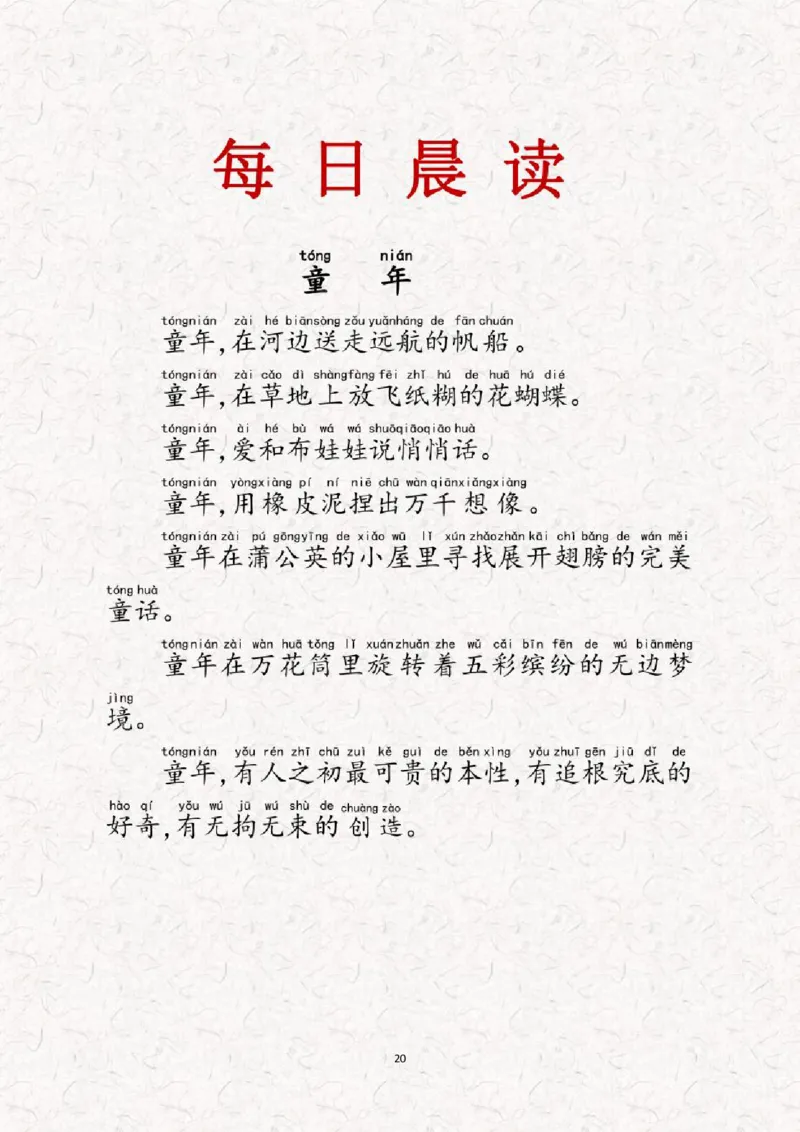 每日晨读
tóng nián
童 年
tóngnián zài hé biānsòng zǒu yuǎnháng de fān chuán
童年,在河边送走远航的帆船。
tóngnián zài cǎo dì shàngfàng fēi zhǐ hú de huā hú dié
童年,在草地上放飞纸糊的花蝴蝶。
tóngnián ài hé bù wá wá shuōqiāoqiāo huà
童年,爱和布娃娃说悄悄话。
tóngnián yòngxiàng pí ní niē chū wàn qiānxiǎngxiàng
童年,用橡皮泥捏出万千想像。
tóngnián zài pú gōngyīng de xiǎo wū lǐ xún zhǎozhǎn kāi chì bǎng de wán měi
童年在蒲公英的小屋里寻找展开翅膀的完美
tóng huà
童话。
tóngnián zài wàn huā tǒng lǐ xuánzhuǎn zhe wǔ cǎi bīn fēn de wú biānmèng
童年在万花筒里旋转着五彩缤纷的无边梦
jìng
境。
tóngnián yǒu rén zhī chū zuì kě guì de běn xìng yǒu zhuī gēn jiū dǐ de
童年,有人之初最可贵的本性,有追根究底的
hào qí yǒu wú jū wú shù de chuàng zào
好奇,有无拘无束的创造。
20